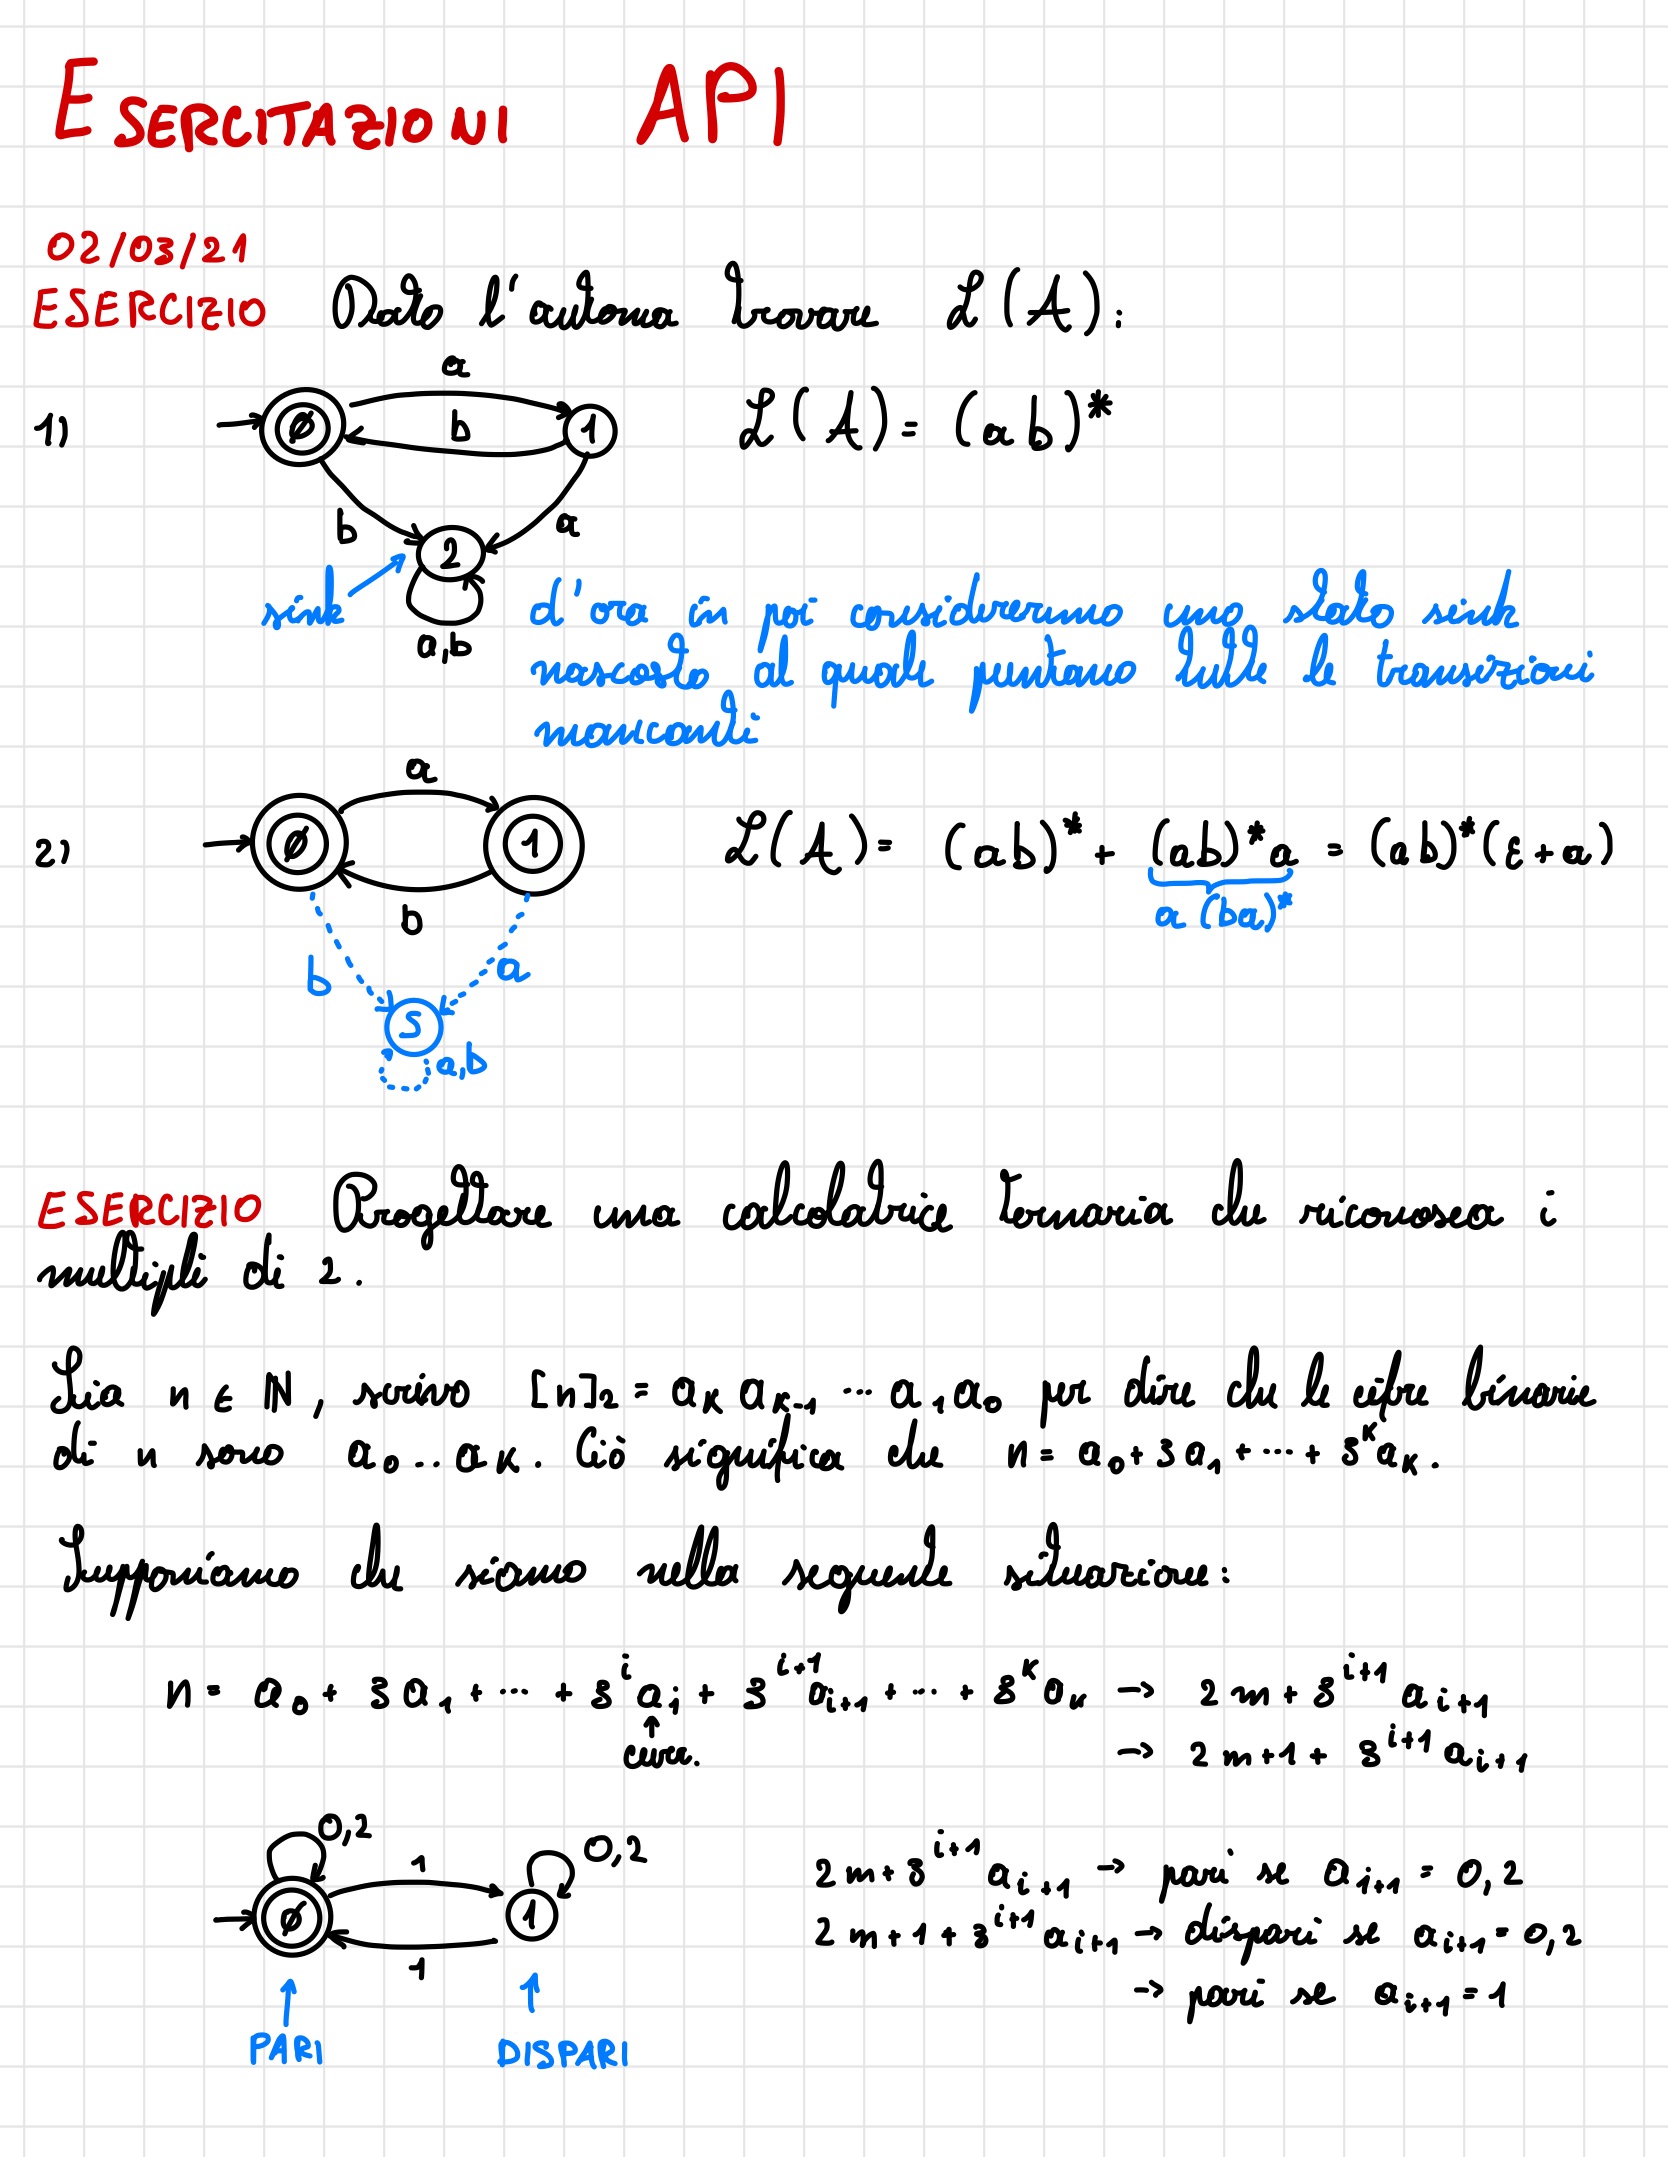 ESERCITAZIONI API
02/03/21
ESERCIZIO Dato l'automa trovare ℒ(A):
1) ∅ a b 1 ℒ(A) = (ab)*
b 2 a
sink a,b
d'ora in poi considereremo uno stato sink
nascosto al quale puntano tutte le transizioni
mancanti
2) ∅ a b 1 ℒ(A) = (ab)* + (ab)*a = (ab)*(ε+a)
a(ba)*
b a
S
a,b
ESERCIZIO Progettare una calcolatrice ternaria che riconosca i
multipli di 2.
Sia n ∈ ℕ, scrivo [n]₂ = aₖ aₖ₋₁ ... a₁a₀ per dire che le cifre binarie
di n sono a₀..aₖ. Ciò significa che n = a₀ + 3a₁ + ... + 3ᵏaₖ.
Supponiamo che siamo nella seguente situazione:
n = a₀ + 3a₁ + ... + 3ⁱaᵢ + 3ⁱ⁺¹aᵢ₊₁ + ... + 3ᵏaₖ → 2m + 3ⁱ⁺¹ aᵢ₊₁
→ 2m+1 + 3ⁱ⁺¹ aᵢ₊₁
0,2 1 0,2
∅ 1
1
PARI DISPARI
2m + 3ⁱ⁺¹ aᵢ₊₁ → pari se aᵢ₊₁ = 0,2
2m+1 + 3ⁱ⁺¹ aᵢ₊₁ → dispari se aᵢ₊₁ = 0,2
→ pari se aᵢ₊₁ = 1